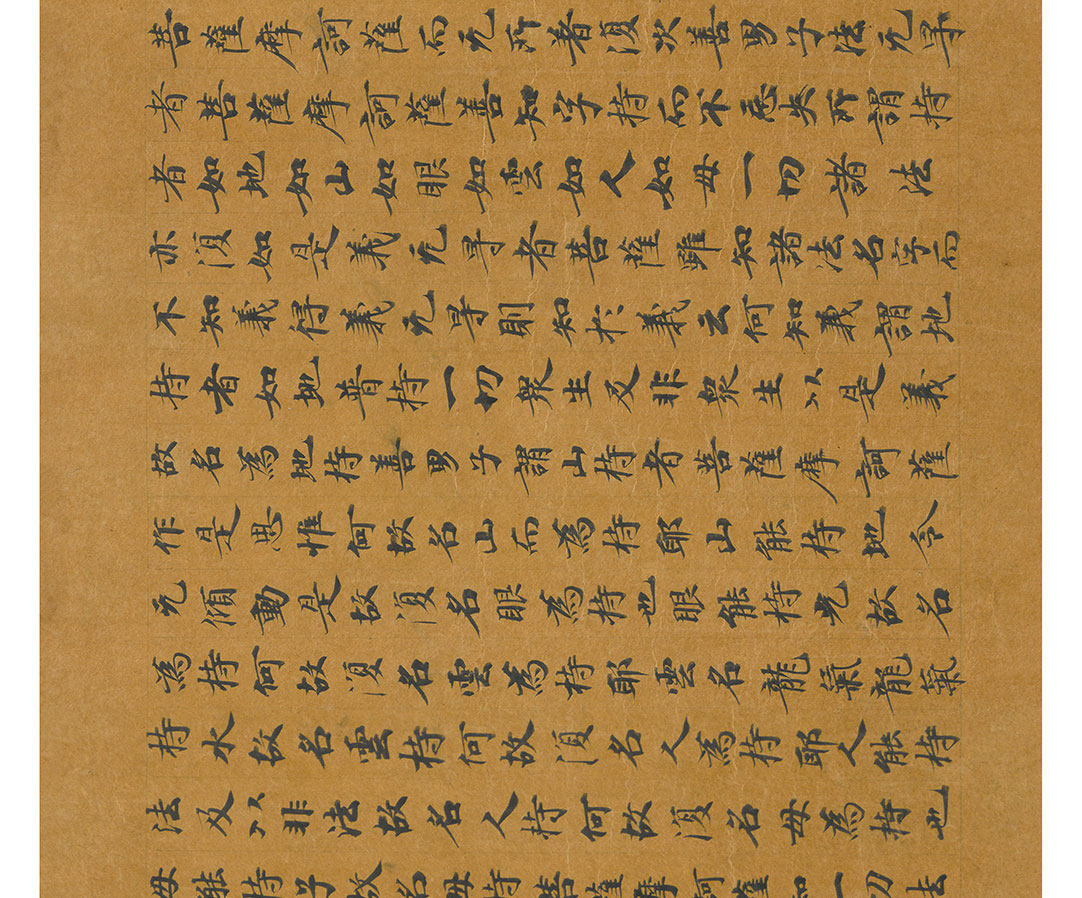 菩薩摩訶薩而无所著復次善男子法无㝵
者菩薩摩訶薩善知字持而不忘失所謂持
者如地如山如眼如雲如人如母一切諸法
亦復如是義无㝵者菩薩雖知諸法名字而
不知義得義无㝵則知於義云何知義謂地
持者如地普持一切眾生及非眾生以是義
故名為地持善男子謂山持者菩薩摩訶薩
作是思惟何故名山而為持耶山能持地令
无傾動是故復名眼為持也眼能持光故名
為持何故復名雲為持耶雲名龍氣龍氣
持水故名雲持何故復名人為持耶人能持
法及以非法故名人持何故復名母為持也
母能持子故名母持菩薩摩訶薩知一切法